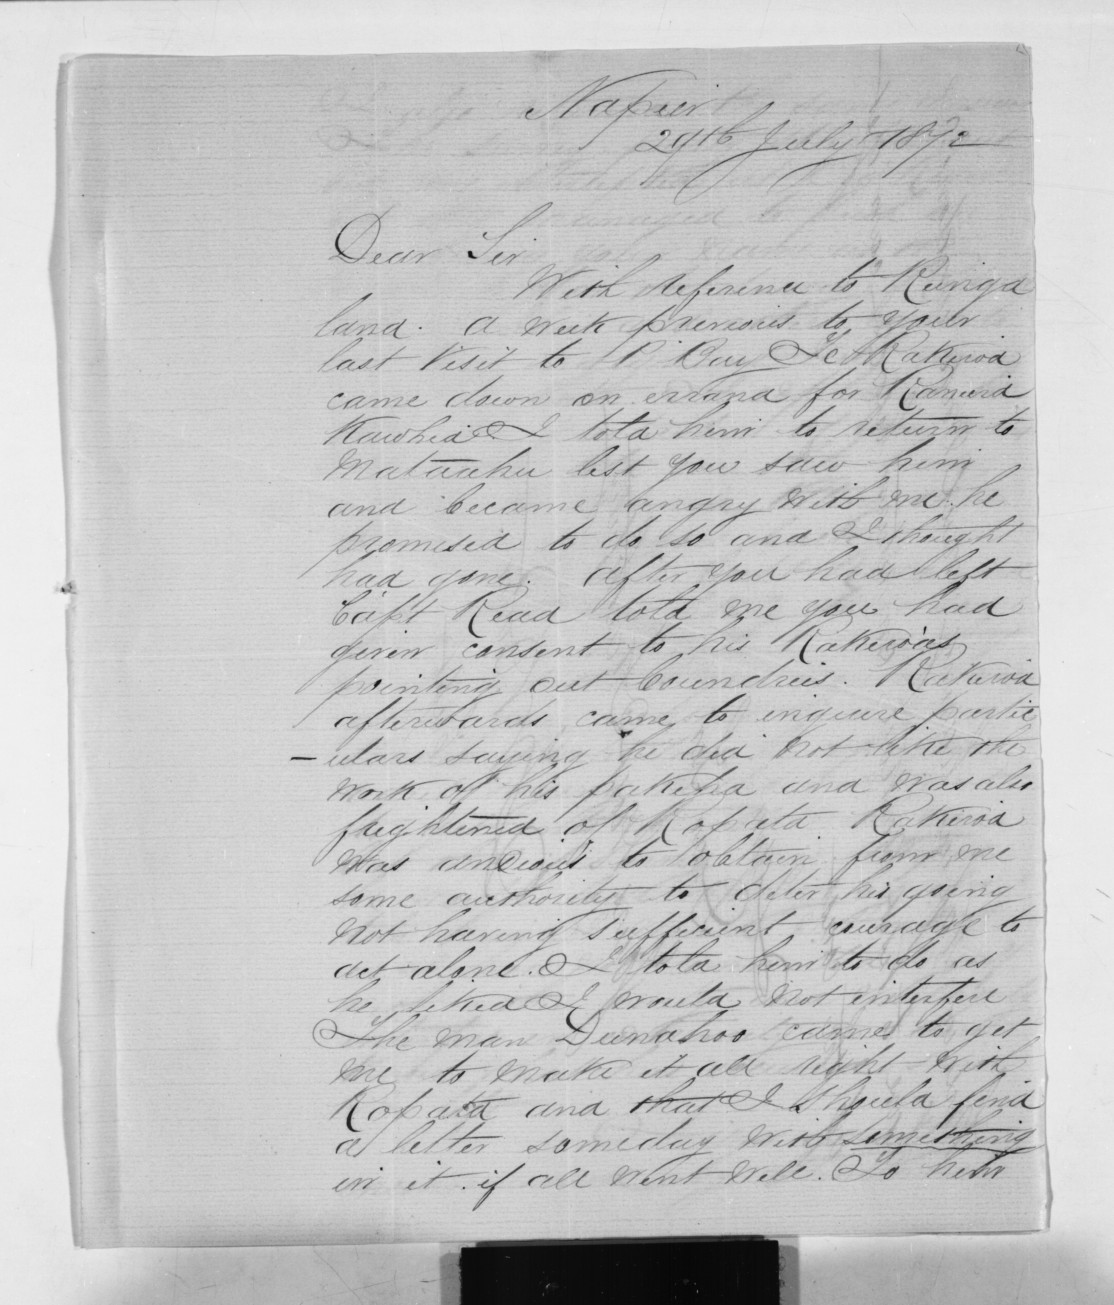 Napier
29th July 1872
Dear Sir
With reference to Runga
land. A week previous to your
last visit to P. Bay Te Rakiroa
came down on errand for Raniera
Kawhia I told him to return to
Mataahu lest you saw him
and became angry with me. he
promised to do so and I thought
had gone. After you had left
Capt Read told me you had
given consent to his Rakiroas
pointing out boundries. Rakiroa
afterwards came to inquire partic
-ulars saying he did not like the
work of his pakeha and was also
frightened of Ropata Rakiroa
was anxious to obtain from me
some authority to deter his going
not having sufficient courage to
act alone. I told him to do as
he liked I would not interfere
The man Dunahoo came to get
me to make it all right with
Ropata and that I should find
a letter someday with something
in it. if all went well. To him